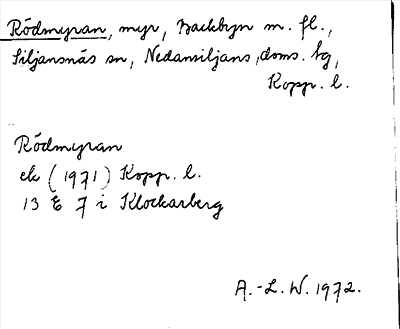 Rödmyran, myr, Backbyn m. fl.,
Siljansnäs sn, Nedansiljans doms. tg,
Kopp. l.
Rödmyran
ek (1971) Kopp. l.
13 E 7 i Klockarberg
A.-L. W. 1972.